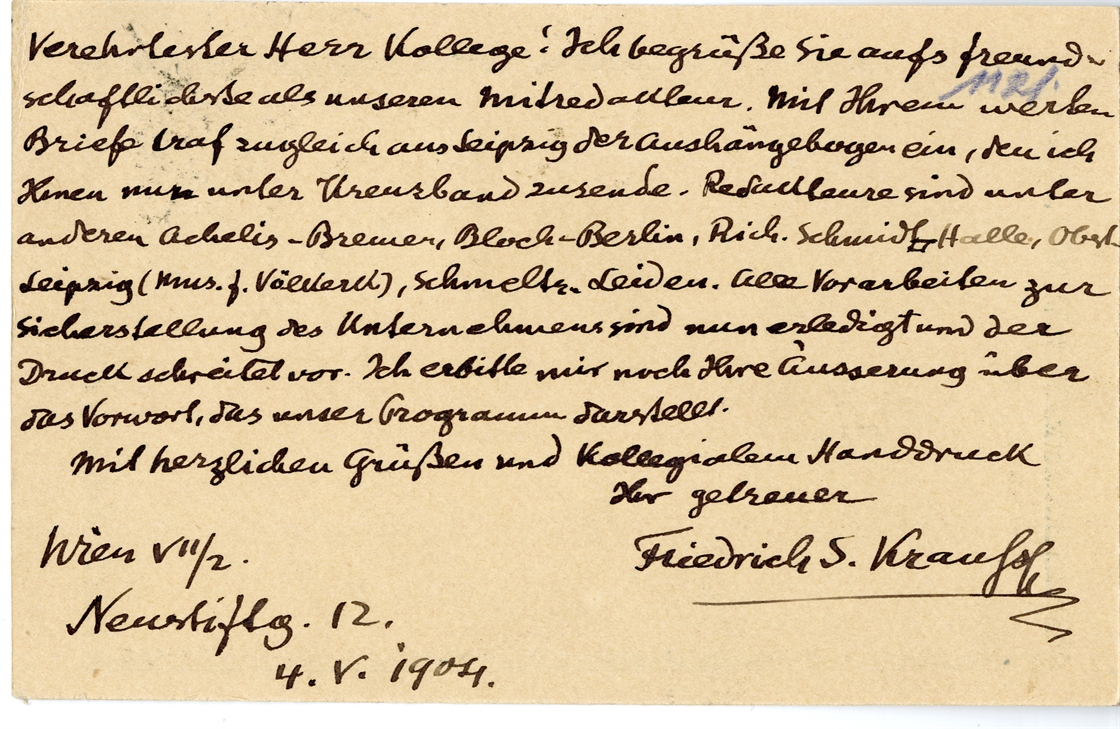 Verehrtester Herr Kollege! Ich begrüße Sie aufs freund-
schaftlichste als unseren Mitredakteur. Mit Ihrem werten
Briefe traf zugleich aus Leipzig der Aushängebogen ein, den ich
Ihnen nun unter Kreuzband zusende. Redakteure sind unter
anderen Achelis-Bremen, Bloch-Berlin, Rich. Schmidt-Halle, Obst-
Leipzig (Mus. f. Völkerk), Schmeltz-Leiden. Alle Vorarbeiten zur
Sicherstellung des Unternehmens sind nun erledigt und der
Druck schreitet vor. Ich erbitte mir noch Ihre Äusserung über
das Vorwort, das unser Programm darstellt.
Mit herzlichen Grüßen und kollegialem Handdruck
Ihr getreuer
Friedrich S. Krauss
Wien VII/2.
Neustiftg. 12.
4. V. 1904.